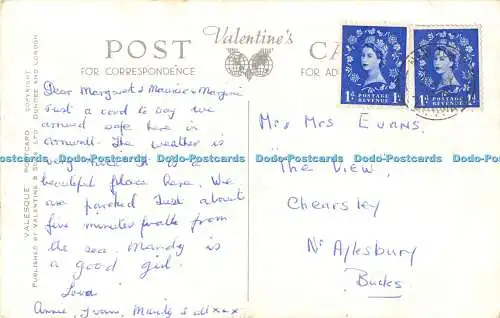 POST CARD
Valentine's
FOR CORRESPONDENCE
FOR AD
1d POSTAGE REVENUE 1d
1d POSTAGE REVENUE 1d
VALESQUE POSTCARD COPYRIGHT
PUBLISHED BY VALENTINE & SONS LTD DUNDEE AND LONDON
Dear Margaret & Maurice & Margorie
Just a card to say we
arrived safe here in
Cornwall. The weather is
very nice. It is a
beautiful place here. We
are parked Just about
five minutes walk from
the sea. Mandy is
a good girl.
Love
Annie, Ivan, Mandy & all xxx
Mr & Mrs EVANS.
"The View,
Chearsley
Nr Aylesbury
Bucks
Dodo-Postcards Dodo-Postcards Dodo-Postcards Dodo-Postcards Dodo-Postcards Dodo-Postcards